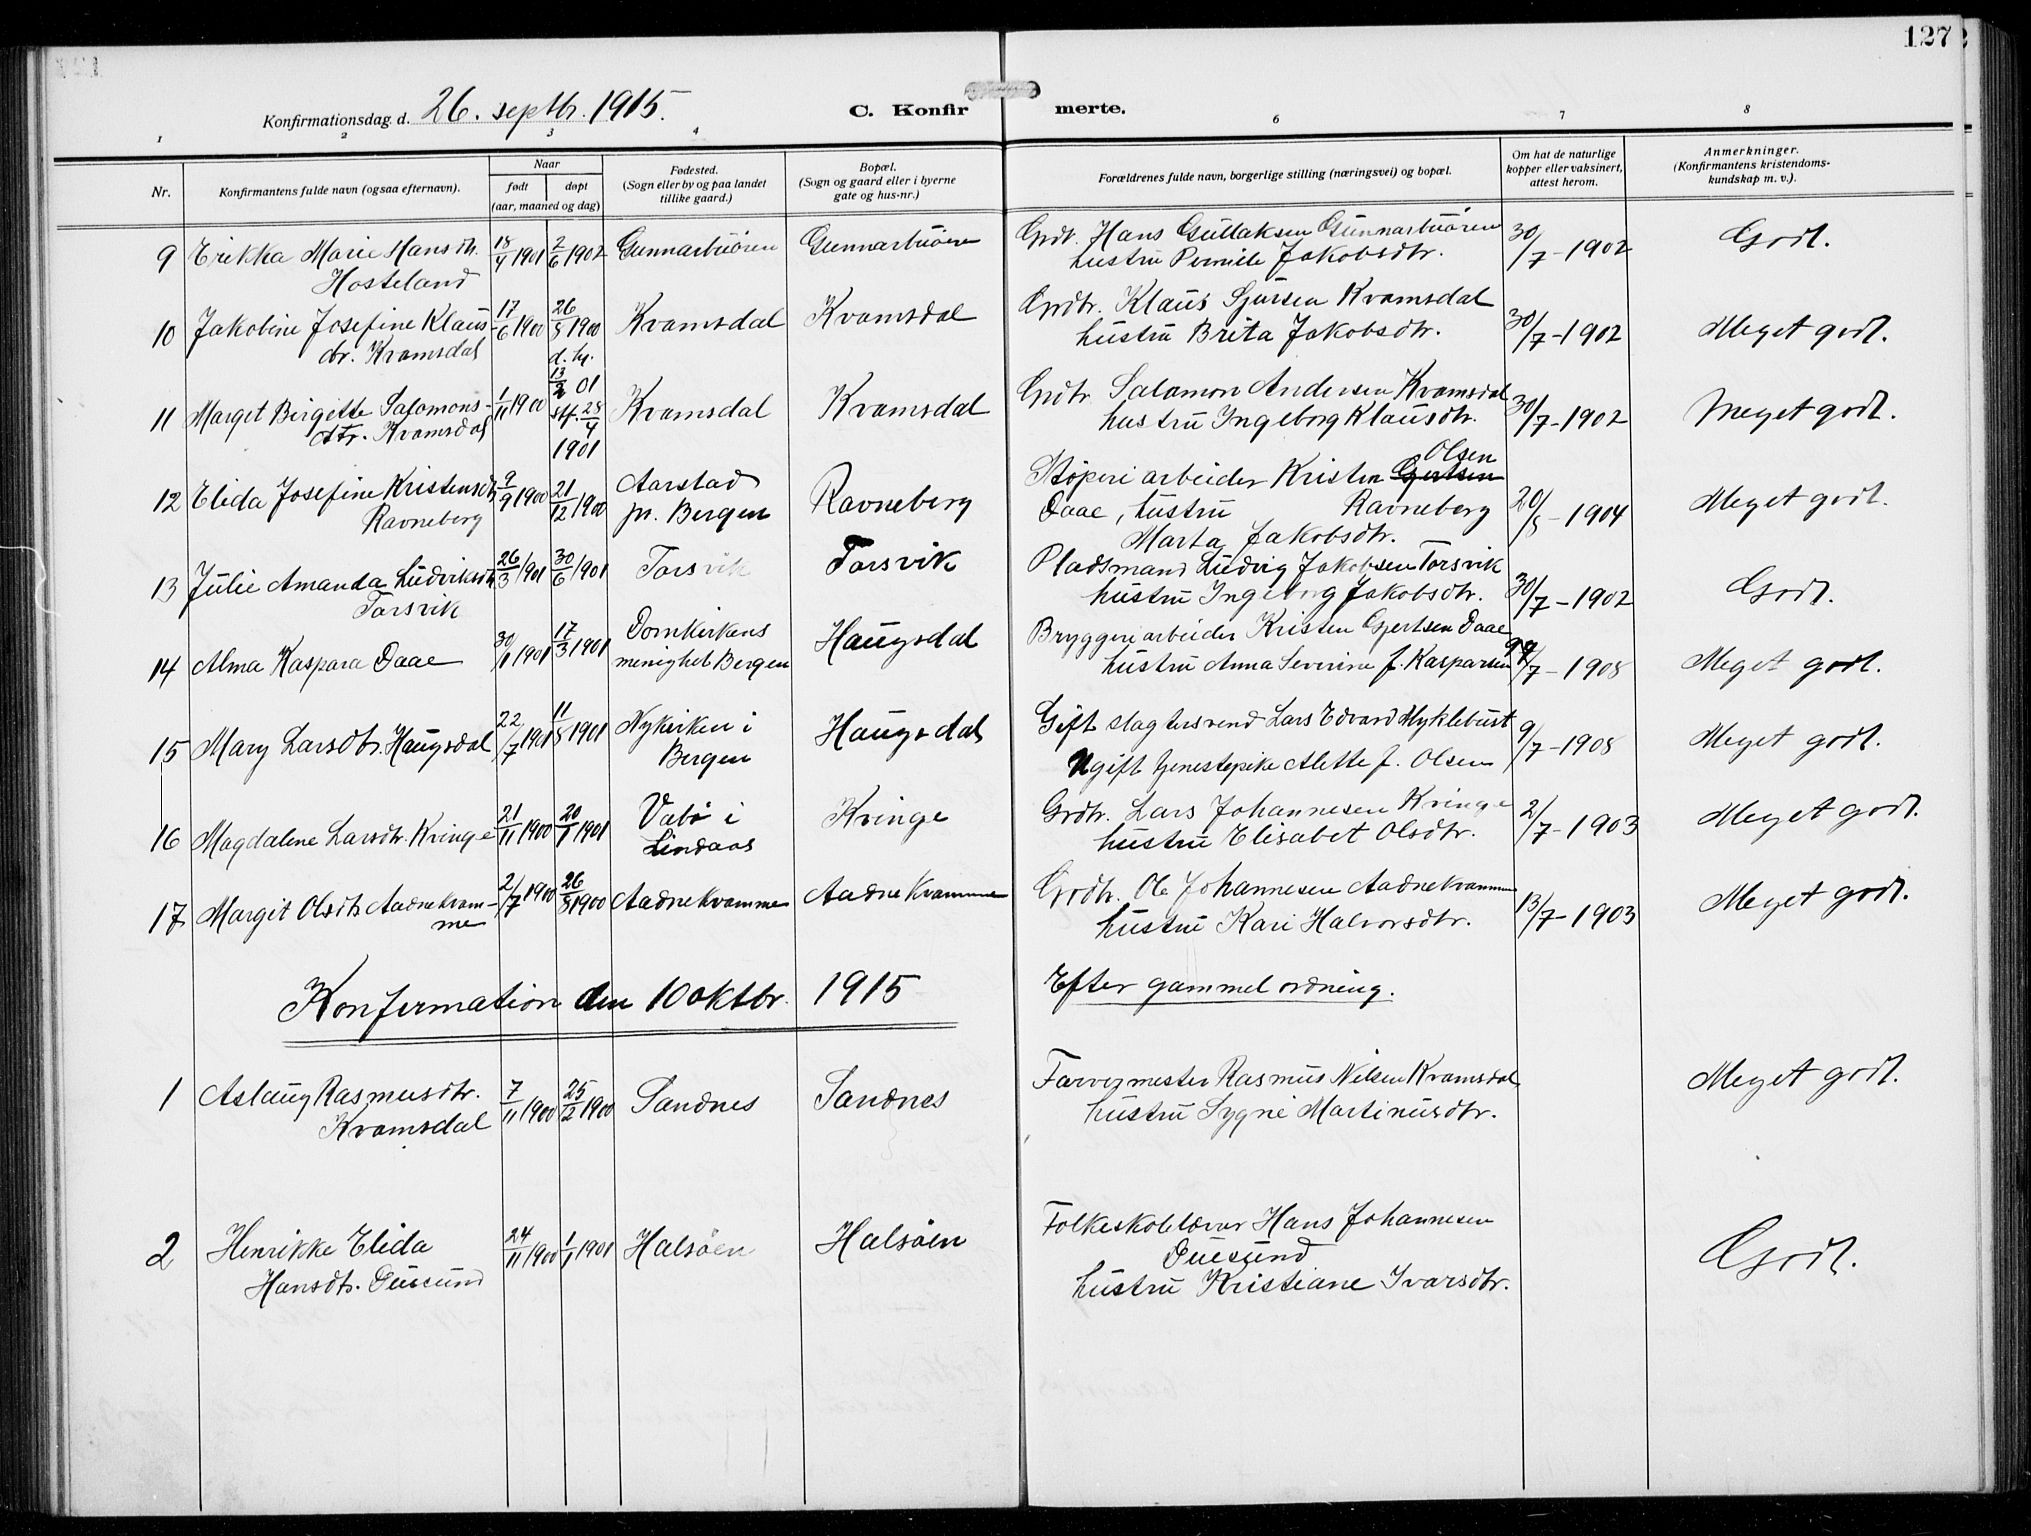 127
Konfirmationsdag d. 26. septbr. 1915.
C. Konfirmerte.
1 2 3 4 6 7 8
Nr.
Konfirmantens fulde navn (ogsaa efternavn).
Naar
født
døpt
(aar, maaned og dag)
Fødested.
(Sogn eller by og paa landet
tillike gaard.)
Bopæl.
(Sogn og gaard eller i byerne
gate og hus-nr.)
Forældrenes fulde navn, borgerlige stilling (næringsvei) og bopæl.
Om hat de naturlige
kopper eller vaksinert,
attest herom.
Anmerkninger.
(Konfirmantens kristendoms-
kundskap m. v.).
9 Erikka Marie Hansdtr. 18/4 1901 2/6 1902 Gunnarbuören Gunnarbuören Grdt. Hans Gullaksen Gunnarbuören 30/7-1902 Godt.
Hosteland hustru Pernille Jakobsdtr.
10 Jakobine Josefine Klaus- 17/6 1900 26/8 1900 Kvamsdal Kvamsdal Grdtr. Klaus Sjursen Kvamsdal 30/7-1902 Meget godt.
dtr. Kvamsdal hustru Brita Jakobsdtr.
11 Marget Birgitte Salomons- 1/11 1900 d. hj. 13/2 01 stf. 28/4 1901 Kvamsdal Kvamsdal Grdtr. Salamon Andersen Kvamsdal 30/7-1902 Meget godt.
dtr. Kvamsdal hustru Ingeborg Klausdtr.
12 Elida Josefine Kristensdtr. 9/9 1900 21/12 1900 Aarstad Ravneberg Støperiarbeider Kristen Gjertsen Olsen 20/8-1904 Meget godt.
Ravneberg pr. Bergen Daae, hustru Ravneberg
Marta Jakobsdtr.
13 Julie Amanda Ludviksdtr. 26/3 1901 30/6 1901 Torsvik Torsvik Pladsmand Ludvig Jakobsen Torsvik 30/7-1902 Godt.
Torsvik hustru Ingeborg Jakobsdtr.
14 Alma Kaspara Daae 30/1 1901 17/3 1901 Domkirkens Haugsdal Bryggeriarbeider Kristen Gjertsen Daae 9/7-1908 Meget godt.
menighet Bergen hustru Anna Severine f. Kasparsen
15 Mary Larsdtr. Haugsdal 22/7 1901 11/8 1901 Nykirken i Haugsdal Gift slagtersvend Lars Edvard Myklebust 9/7-1908 Meget godt.
Bergen Ugift tjenestepike Alette J. Olsen
16 Magdalene Larsdtr. Kringe 21/11 1900 20/1 1901 Vabö i Kringe Grdtr. Lars Johannesen Kringe 2/7-1903 Meget godt.
Lindaas hustru Elisabet Olsdtr.
17 Margit Olsdtr. Aadnekvam- 2/7 1900 26/8 1900 Aadnekvamme Aadnekvamme Grdtr. Ole Johannesen Aadnekvamme 13/7-1903 Meget godt.
me hustru Kari Halvorsdtr.
Konfirmation den 10 oktbr. 1915 Efter gammel ordning.
1 Aslaug Rasmusdtr. 7/11 1900 25/2 1900 Sandnes Sandnes Farvermester Rasmus Nilsen Kvamsdal Meget godt.
Kvamsdal hustru Sygne Martinusdtr.
2 Henrikke Elida 24/11 1900 1/1 1901 Halsöen Halsöen Folkeskolelærer Hans Johannesen Godt.
Hansdtr. Duesund Duesund
hustru Kristiane Ivarsdtr.